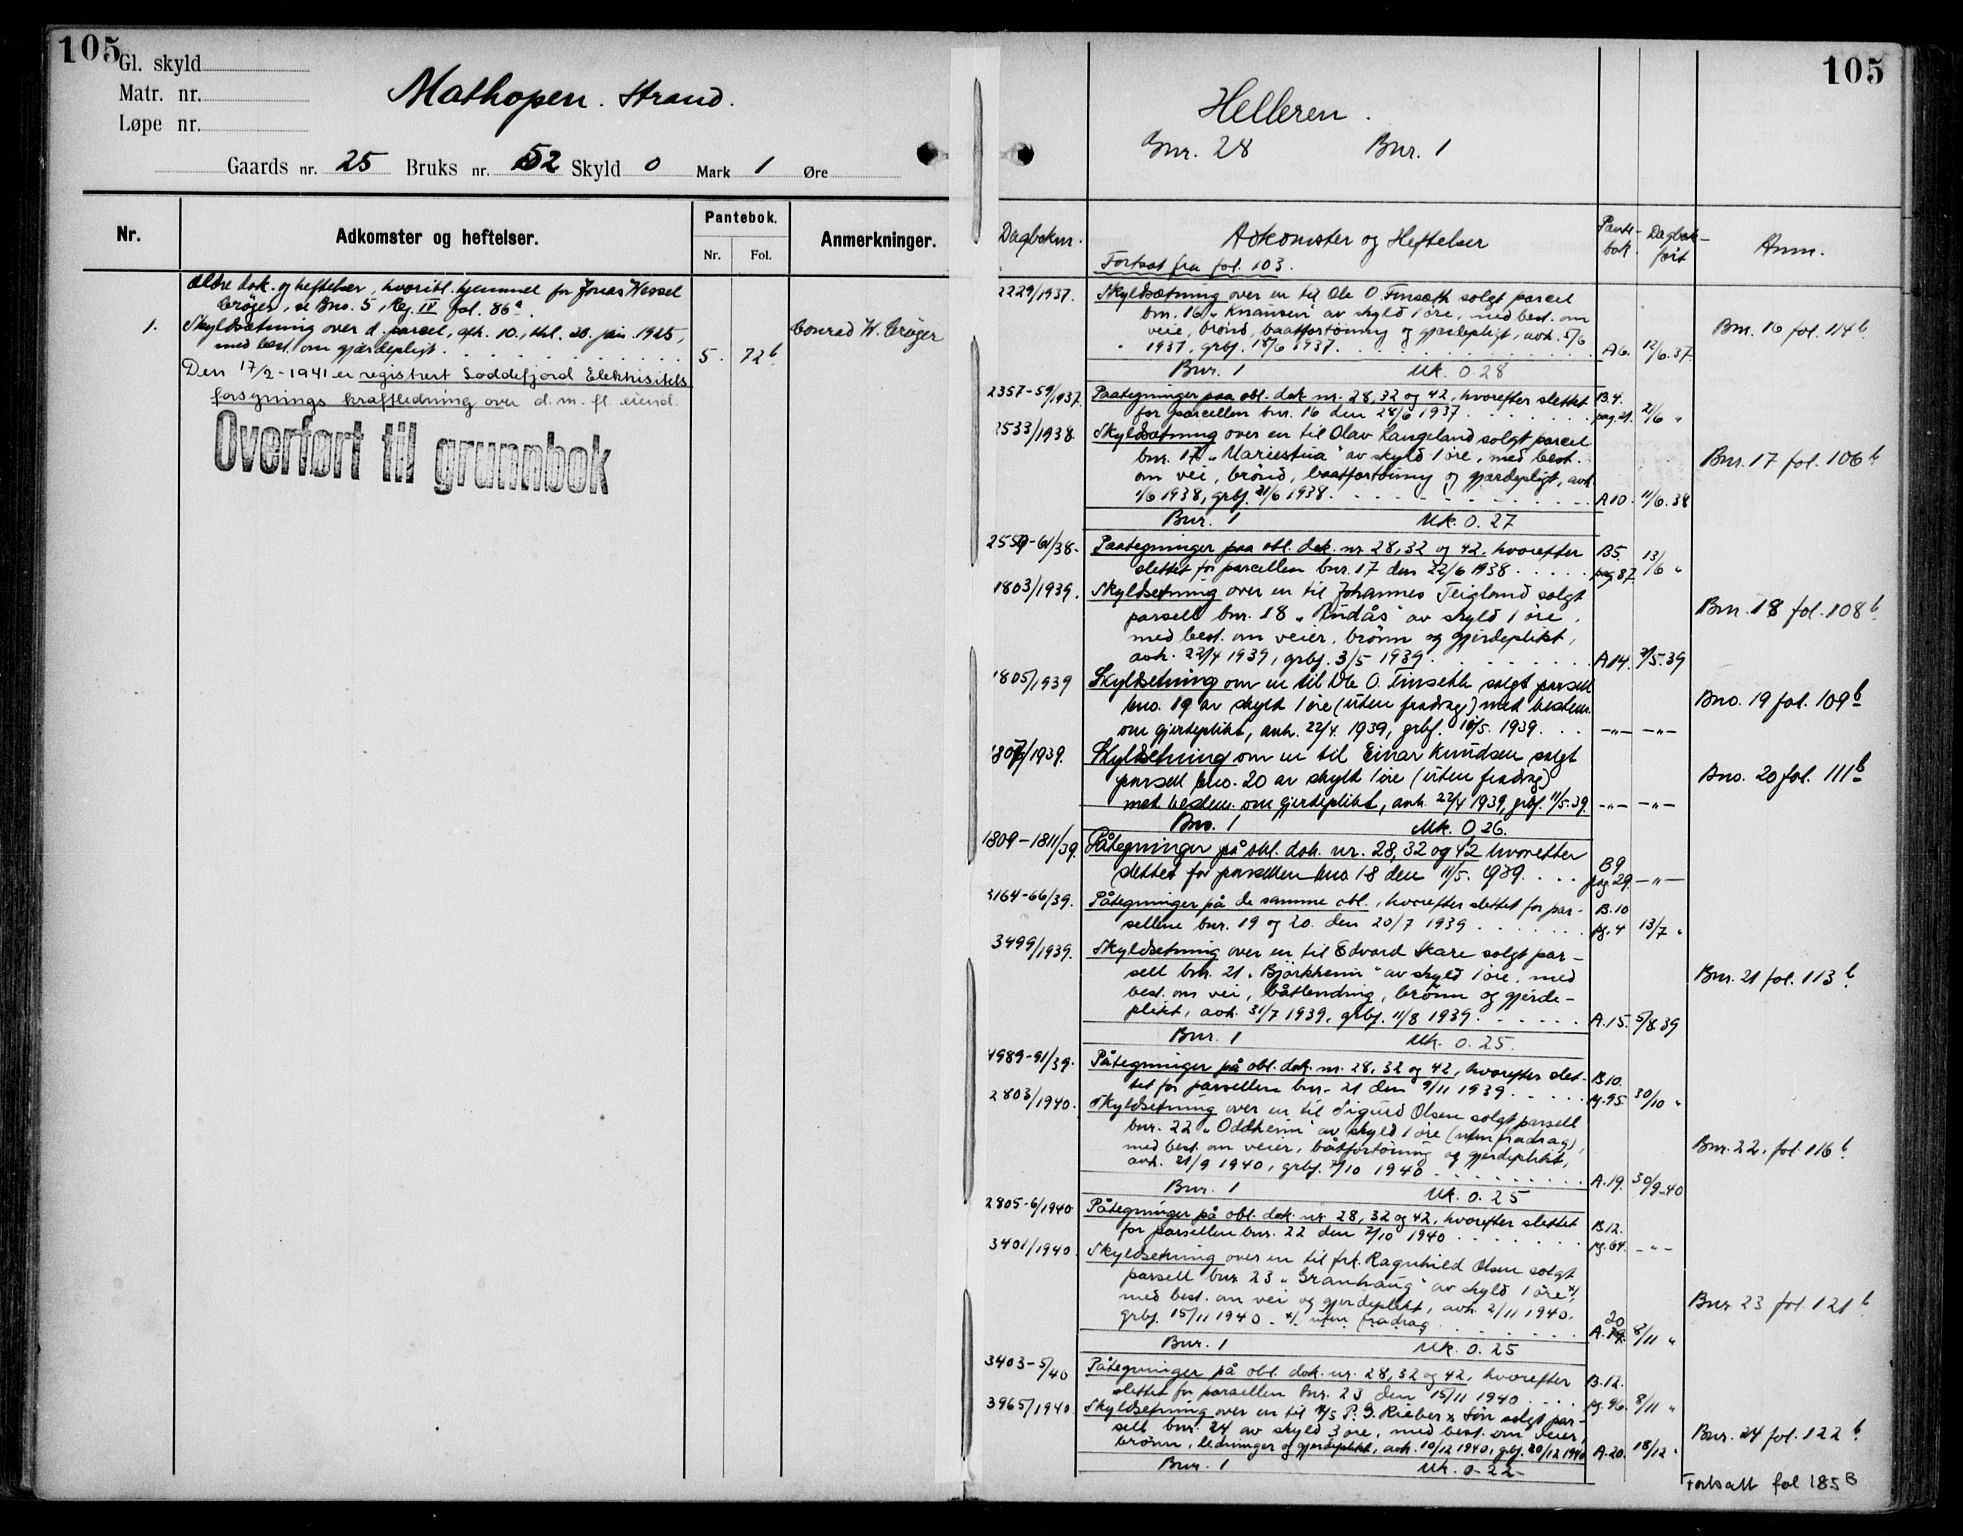 105
Gl. skyld
Matr. nr.
Løpe nr.
Mathopen. Strand.
Gaards nr. 25 Bruks nr. 52 Skyld 0 Mark 1 Øre
Nr.
Adkomster og heftelser.
Pantebok.
Nr. Fol.
Anmerkninger.
Ældre dok. og heftelser, hvoribl. hjemmel for Jonas Wessel
Crøger, se Bno. 5, Reg. IV fol. 86a.
1. Skyldsætning over d. parcel, afh. 10., thl. 20. juni 1925,
med best. om gjærdepligt. 5. 72b Conrad W. Crøger
Den 17/2 - 1941 er registrert Loddefjord Elektrisitets
forsynings kraftledning over d. m. fl. eiend.
Overført til grunnbok
105
Helleren.
Gnr. 28 Bnr. 1
Dagboknr. Adkomster og Heftelser Pante- bok. Dagbok- ført Anm.
Fortsat fra fol. 103.
2229/1937. Skyldsætning over en til Ole O. Tinseth solgt parcel
bnr. 16 „Knausen" av skyld 1 øre, med best. om Bnr. 16 fol. 114b
veie, brønd, baatfortøining og gjærdepligt, avh. 5/6
1937, grbj. 18/6 1937. A6. 12/6. 37
Bnr. 1 Mk. 0.28
2357-59/1937. Paategninger paa obl. dok. nr. 28, 32 og 42, hvorefter slettet B.4.
for parcellen bnr. 16 den 28/6 1937. pag. 21. 21/6 "
2533/1938. Skyldsætning over en til Olav Langeland solgt parcel
bnr. 17 „Mariestua" av skyld 1 øre, med best. Bnr. 17 fol. 106b
om vei, brønd, baatfortøining og gjærdepligt, avh.
1/6 1938, grbj. 21/6 1938. A10. 11/6. 38
Bnr. 1 Mk. 0.27
2559-61/38. Paategninger paa obl. dok. nr. 28, 32 og 42, hvorefter B5. 13/6 "
slettet for parcellen bnr. 17 den 22/6 1938. pag 87
1803/1939. Skyldsetning over en til Johannes Teigland solgt
parsell bnr. 18 „Rudås" av skyld 1 øre, Bnr. 18 fol. 108b
med best. om veier, brønn og gjerdeplikt,
avh. 22/4 1939, grbj. 3/5 1939. A14. 2/5. 39
1805/1939 Skyldsetning om en til Ole O. Tinseth solgt parsell
bno. 19 av skyld 1 øre (uten fradrag) med bestem. Bno. 19 fol. 109b
om gjerdeplikt, avh. 22/4. 1939, grbj. 11/5. 1939. -"- -"-
1807/1939. Skyldsetning om en til Einar Knudsen solgt
parsell bno. 20 av skyld 1 øre (uten fradrag) Bno. 20 fol. 111b
med bestem. om gjerdeplikt, avh. 22/4 1939, grbj. 11/5-39. -"- -"-
Bno. 1 Mk. 0,26.
1809-1811/39. Påtegninger på obl. dok. nr. 28, 32 og 42 hvoretter
slettet for parsellen bno 18 den 11/5. 1939. B9 pag. 29. -"-
3164-66/39. Påtegninger på de samme obl., hvorefter slettet for par- B.10
sellene bnr. 19 og 20. den 20/7 1939 pg. 4 13/7 "
3499/1939. Skyldsetning over en til Edvard Skare solgt par-
sell bnr. 21 „Bjørkheim" av skyld 1 øre, med Bnr. 21 fol. 113b
best. om vei, båtlending, brønn og gjerde-
plikt, avh. 31/7 1939, grbj. 11/8 1939. A.15. 5/8 39
Bnr. 1 Mk. 0.25.
4989-91/39. Påtegninger på obl. dok. nr. 28, 32 og 42, hvorefter slet- B10.
tet for parsellen bnr. 21 den 9/11 1939. pg. 95. 30/10 "
2803/1940. Skyldsetning over en til Sigurd Olsen solgt parsell
bnr. 22 „Oddheim" av skyld 1 øre (uten fradrag), Bnr. 22. fol. 116b
med best. om veier, båtfortøining og gjerdeplikt,
avh. 21/9 1940, grbj. 7/10 1940. A.19. 30/9-40
Bnr. 1 Mk. 0.25
2805-6/1940 Påtegninger på obl. dok. nr. 28, 32 og 42, hvorefter slettet B12.
for parsellen bnr. 22 den 7/10 1940. pg. 64. -"-
3401/1940. Skyldsetning over en til frk. Ragnhild Olsen solgt
parsell bnr 23 „Granhaug" av skyld 1 øre x/, Bnr 23 fol. 121b
med best. om vei og gjerdeplikt, avh. 2/11 1940,
grbj. 15/11 1940. x/. uten fradrag A.20 8/11 "
Bnr. 1 Mk. 0.25
3403-5/40 Påtegninger på obl. dok. nr. 28, 32 og 42, hvorefter B.12.
slettet for parsellen bnr. 23 den 15/11 1940. pg. 96. 8/11 "
3965/1940 Skyldsetning over en til A/S P. G. Rieber & Søn solgt par-
sell bnr. 24 av skyld 3 øre, med best. om veier, Bnr. 24 fol. 122b
brønn, ledninger og gjerdeplikt, avh. 10/12 1940, grbj. 20/12 1940 A.20. 18/12 "
Bnr. 1 Mk. 0-22-
Fortsatt fol 185B